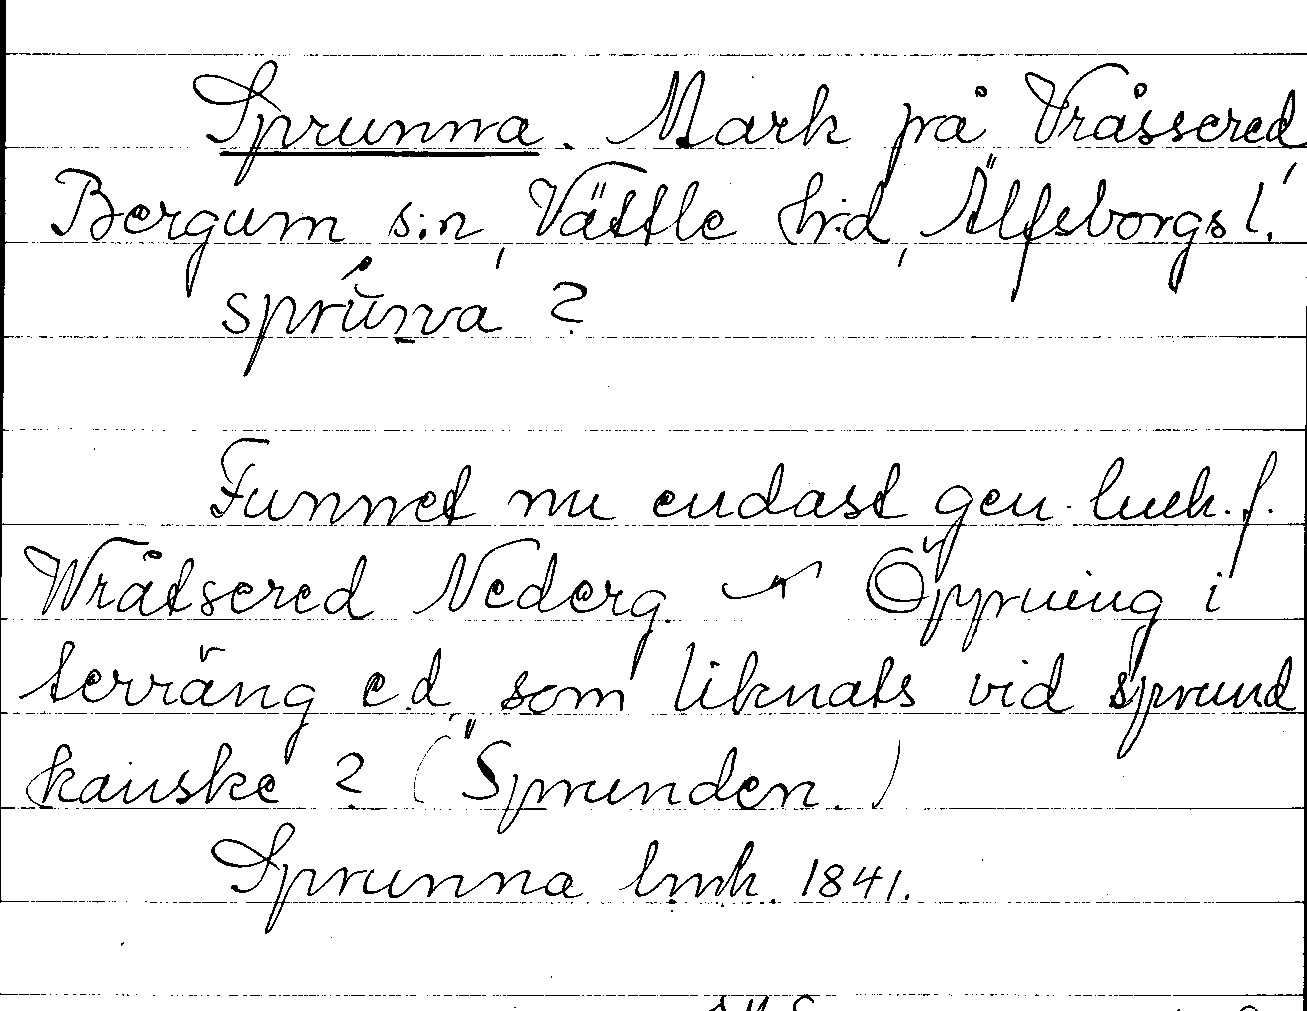 Sprunna. Mark på Vråssered,
Bergum s:n, Vättle h:d, Älfsborgs l.
sprŭnna ?
Funnet nu endast gen. lmk. f.
Wråtsered Nederg. Öppning i
terräng e.d. som liknats vid sprund
kanske ? ("Sprunden.)
Sprunna lmk. 1841.